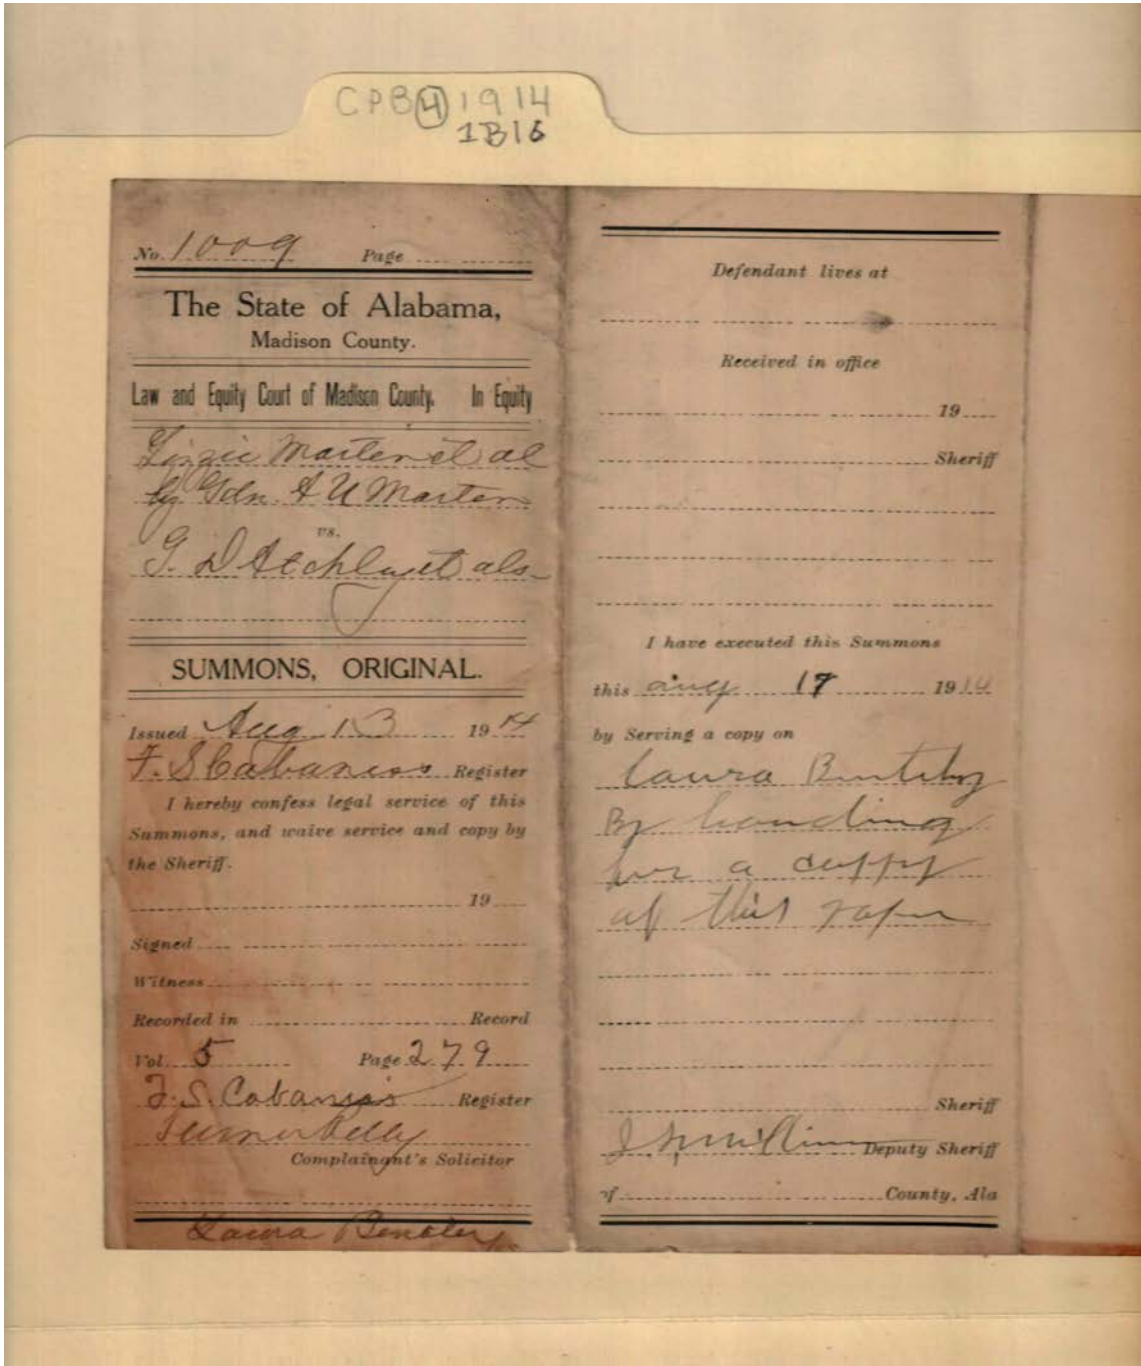 CPB 4 1914
1B16
No. 1009 Page
The State of Alabama,
Madison County.
Law and Equity Court of Madison County. In Equity
Lizzie Marten et al
by Gdn. A U Marten
vs.
G. D et als
SUMMONS, ORIGINAL.
Issued Aug 13 1914
F. S Cabaniss Register
I hereby confess legal service of this
Summons, and waive service and copy by
the Sheriff.
19
Signed
Witness
Recorded in Record
Vol. 5 Page 279
F. S. Cabaniss Register
Complainant's Solicitor
Laura Bentley
Defendant lives at
Received in office
19
Sheriff
I have executed this Summons
this aug 17 19
by Serving a copy on
Laura
By handing
her a cuppy
of this paper
Sheriff
Deputy Sheriff
of County, Ala